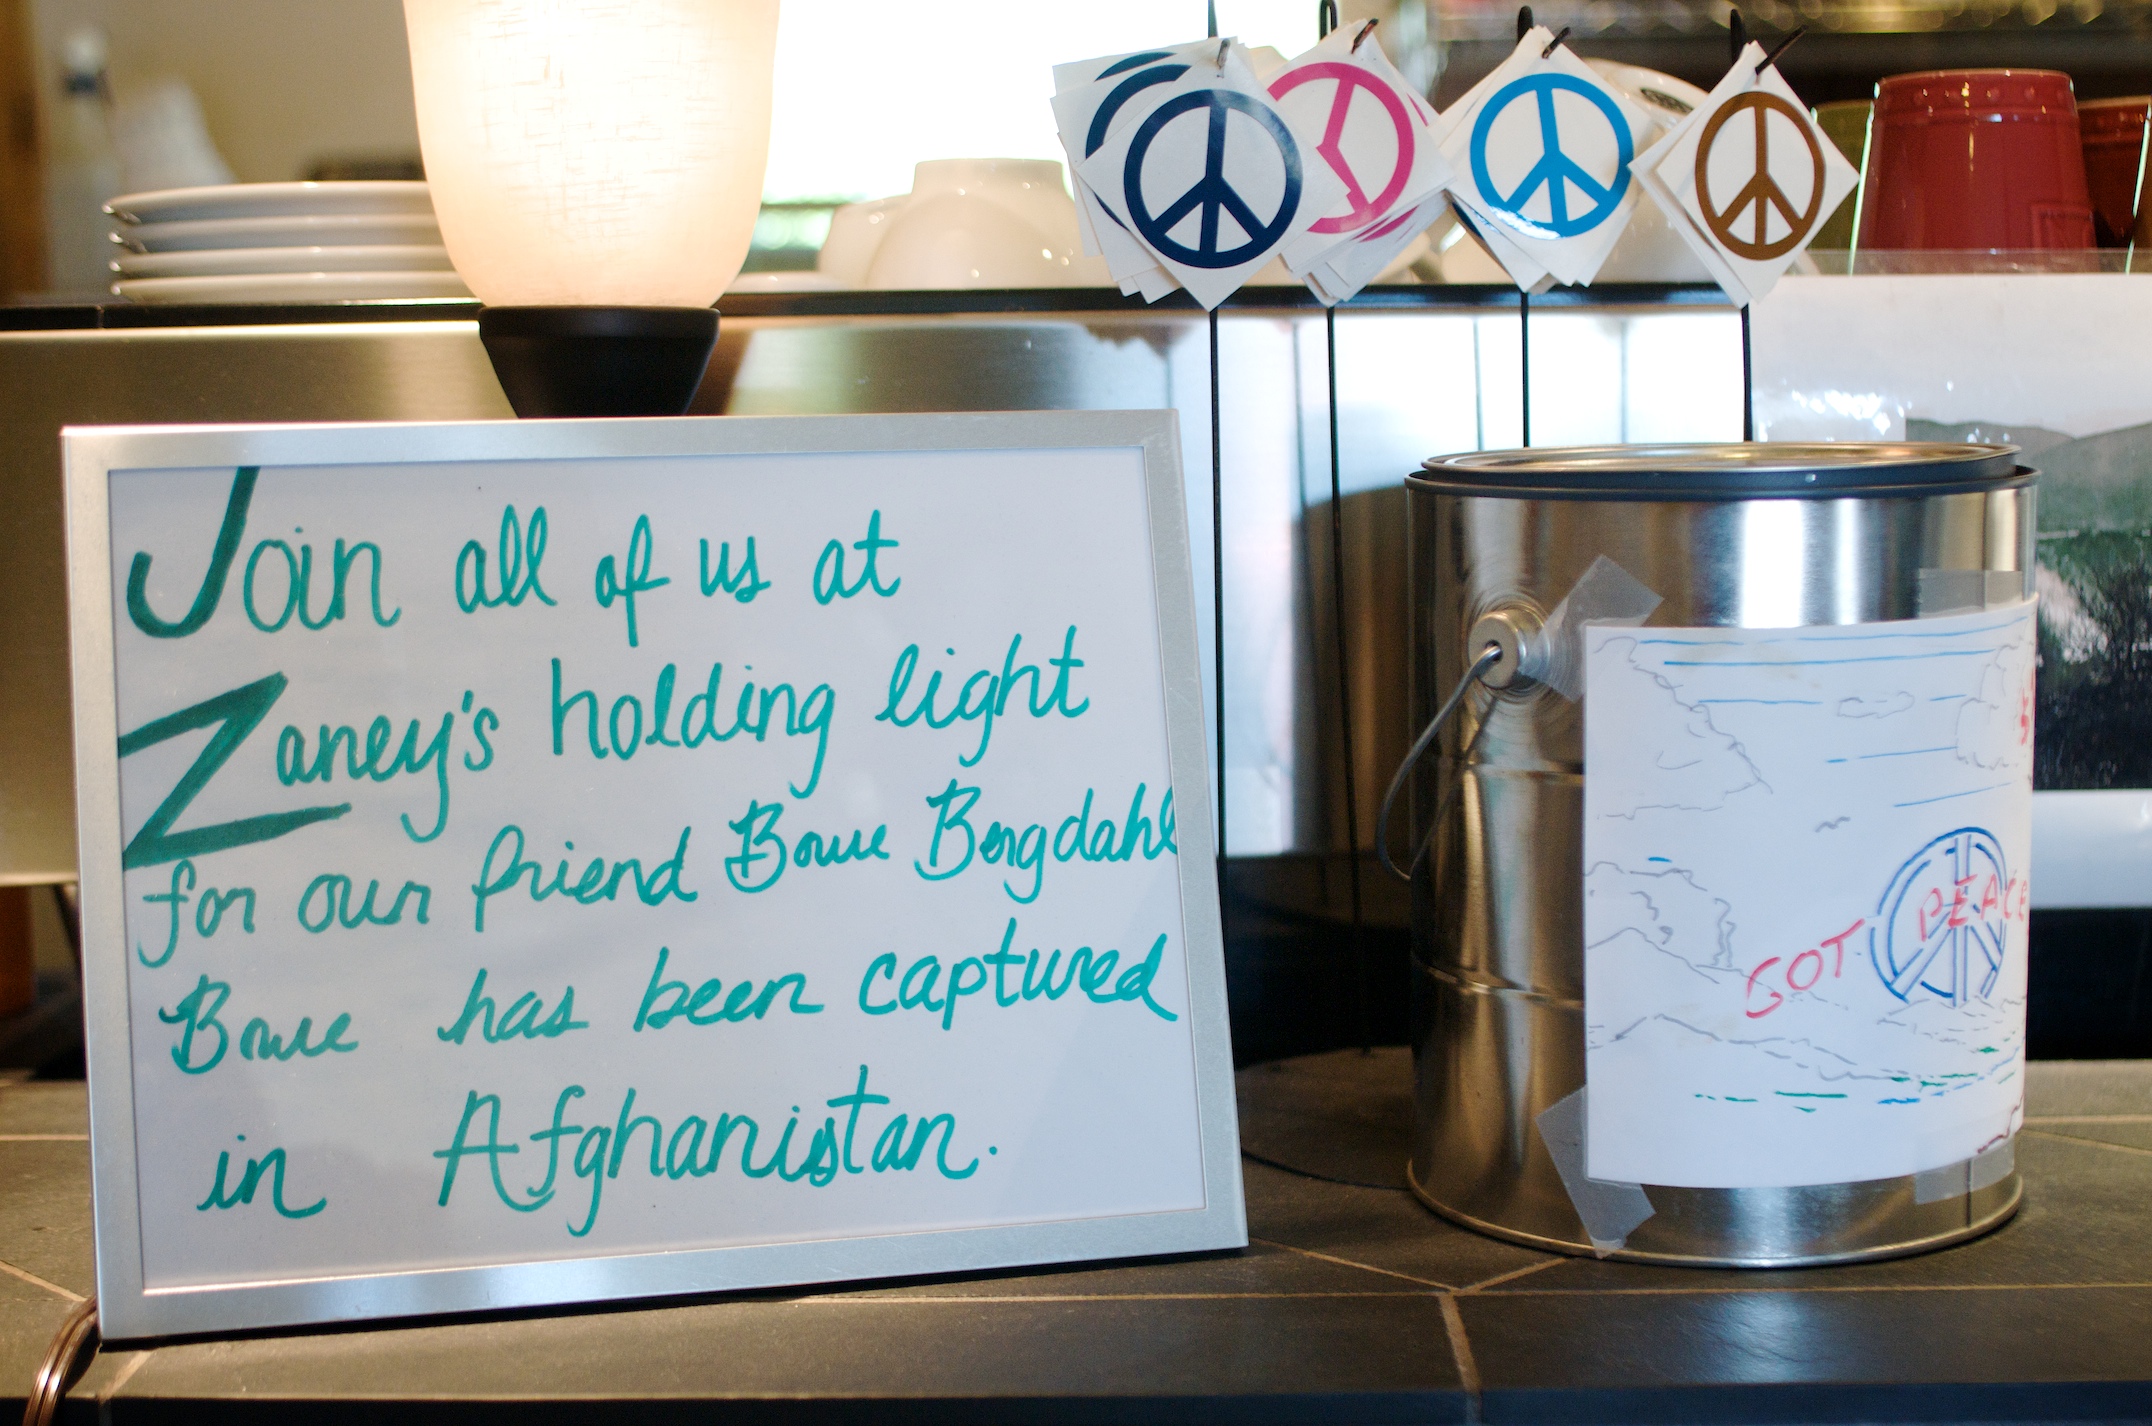 Join all of us at
Zaney's holding light
for our friend Bowe Bergdahl
Bowe has been captured
in Afghanistan.
GOT PEACE